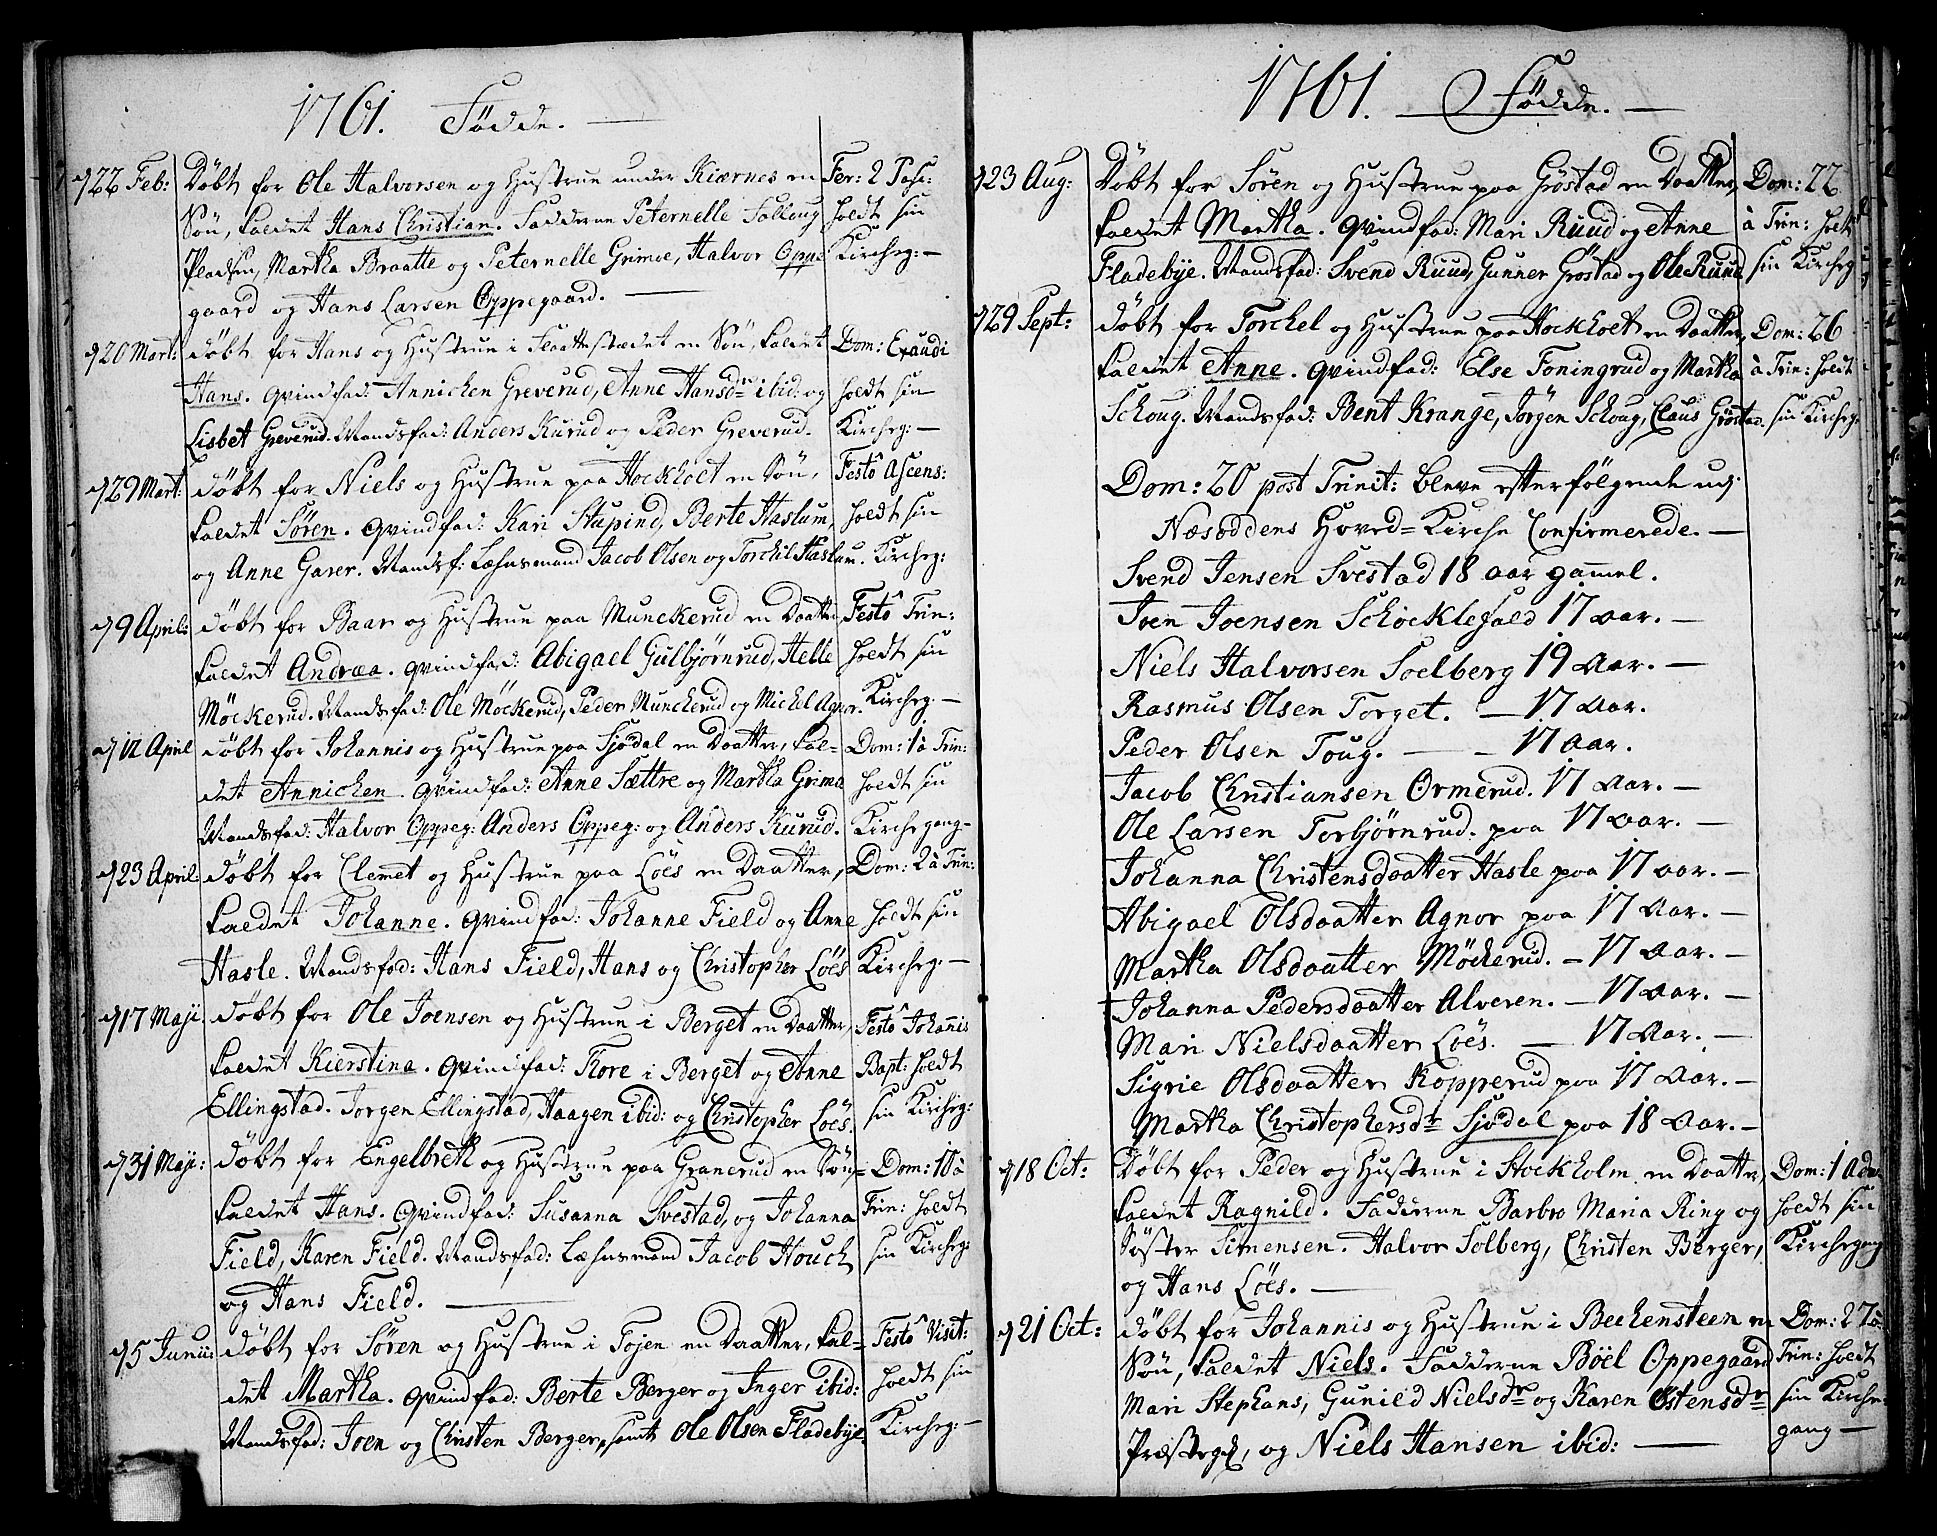 1761. Födde.
d 22 Feb: Döbt for Ole Halvorsen og Hustrue under Kiærnes en Fer: 2 Pasc:
Sön, kaldet Hans Christian. Fadderne Peternelle Falleug holdt sin
Pladsen, Martha Braatte og Peternelle Grimoe, Halvor Oppe Kircheg: –
gaard og Hans Larsen Oppegaard.
d 20 Mart: döbt for Hans og Hustrue i Flaattestædet en Sön, kaldet Dom: Exaudi
Hans. Qvindfad: Annichen Greverud, Anne Hansdr ibid: og holdt sin
Lisbet Greverud. Mandsfad: Anders Kurud og Peder Greverud. Kircheg: –
d 29 Mart: döbt for Niels og Hustrue paa Hockholt en Sön, Festo Ascens:
kaldet Sören. Qvindfad: Kari Stupind, Berte Haslum, holdt sin
og Anne Gaser. Mandsf: Læhnsmand Jacob Olsen og Torchil Haslum. Kircheg:
d 9 April: döbt for Baar og Hustrue paa Munckerud en Daatter, Festo Trin:
kaldet Andræa. Qvindfad: Abigael Gulbjörnrud, Helle holdt sin
Möckerud. Mandsfad: Ole Möckerud, Peder Munckerud og Michel Agnor. Kircheg: –
d 12 April döbt for Johannis og Hustrue paa Sjödal en Daatter, kal= Dom: 1 à Trin:
det Annichen. Qvindfad: Anne Sættre og Martha Grimo holdt sin
Mandsfad: Halvor Oppeg: Anders Oppeg: og Anders Kurud. Kirchegang–
d 23 April: döbt for Clemet og Hustrue paa Löes en Daatter, Dom: 2 à Trin:
kaldet Johanne. Qvindfad: Johanne Field og Anne holdt sin
Hasle. Mandsfad: Hans Field, Hans og Christopher Löes Kircheg: –
d 17 Maji: döbt for Ole Joensen og Hustrue i Berget en Daatter, Festo Johannis
kaldet Kierstina. Qvindfad: Tore i Berget og Anne Bapt: holdt
Ellingstad. Jorgen Ellingstad, Haagen ibid: og Christopher Löes. sin Kircheg:
d 31 Maji: döbt for Engelbreth og Hustrue paa Granerud en Sön, Dom: 10 à
kaldet Hans. Qvindfad: Susanna Svestad, og Johanna Trin: holdt
Field, Karen Field. Mandsfad: Læhnsmand Jacob Houch sin Kircheg:
og Hans Field.
d 5 Junii: döbt for Sören og Hustrue i Tojen en Daatter, kal= Festo Visit:
det Martha. Qvindfad: Berte Berger og Inger ibid: holdt sin
Mandsfad: Joen og Christen Berger, samt Ole Olsen Fladebye. Kircheg: –
1761. Födde. –
d 23 Aug: Döbt for Sören og Hustrue paa Gröstad en Daatter, Dom: 22
kaldet Martha. Qvindfad: Mari Ruud og Anne à Trin: holdt
Fladebye. Mandsfad: Svend Ruud, Gunner Gröstad og Ole Ruud sin Kircheg
d 29 Sept: döbt for Torchel og Hustrue paa Hockholt en Daatter, Dom: 26
kaldet Anne. Qvindfad: Else Foningrud og Martha à Trin: holdt
Schoug. Mandsfad: Bent Krange, Jörgen Schoug, Claus Gröstad. sin Kircheg:
Dom: 20 post Trinit: bleve efterfölgende udj
Næsoddens Hoved=Kirche Confirmerede. –
Svend Jensen Svestad 18 aar gammel.
Iven Joensen Schocklefald 17 aar. –
Niels Halvorsen Soelberg 19 Aar. –
Rasmus Olsen Torget. – 17 Aar.
Peder Olsen Toug. – – 17 Aar.
Jacob Christiansen Ormerud. 17 Aar. –
Ole Larsen Torbjörnrud. paa 17 Aar. –
Johanna Christensdaatter Hasle paa 17 aar. –
Abigael Olsdaatter Agnor paa 17 Aar. –
Martha Olsdaatter Möckerud. – 17 Aar. –
Johanna Pedersdaatter Alveren. – 17 Aar. –
Mari Nielsdaatter Löes. – 17 Aar. –
Sigrie Olsdaatter Kopperud paa 17 Aar. –
Martha Christophersdr Sjödal paa 18 Aar. –
d 18 Oct: Döbt for Peder og Hustrue i Stockholm en Daatter, Dom: 1 Adv:
kaldet Ragnild. Fadderne Barbro Maria Ring og holdt sin
Söster Simensen. Halvor Solberg, Christen Berger, Kirchegang
og Hans Löes. –
d 21 Oct: döbt for Johannis og Hustrue i Bechensteen en Dom: 27 à
Sön, kaldet Niels. Fadderne Böel Oppegaard Trin: holdt
Mari Stephans, Gunild Nielsdr og Karen Ostensdr sin Kirche
Præsteg:, og Niels Hansen ibid: – gang –